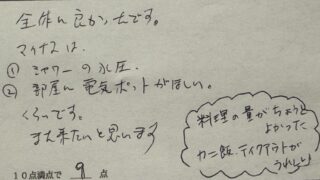 全体に良かったです。
マイナスは、
① シャワーの水圧.
② 部屋に電気ポットがほしい。
くらいです。
また来たいと思います
料理の量がちょうど
よかった
カニ飯、テイクアウトが
うれしい
10点満点で 9 点